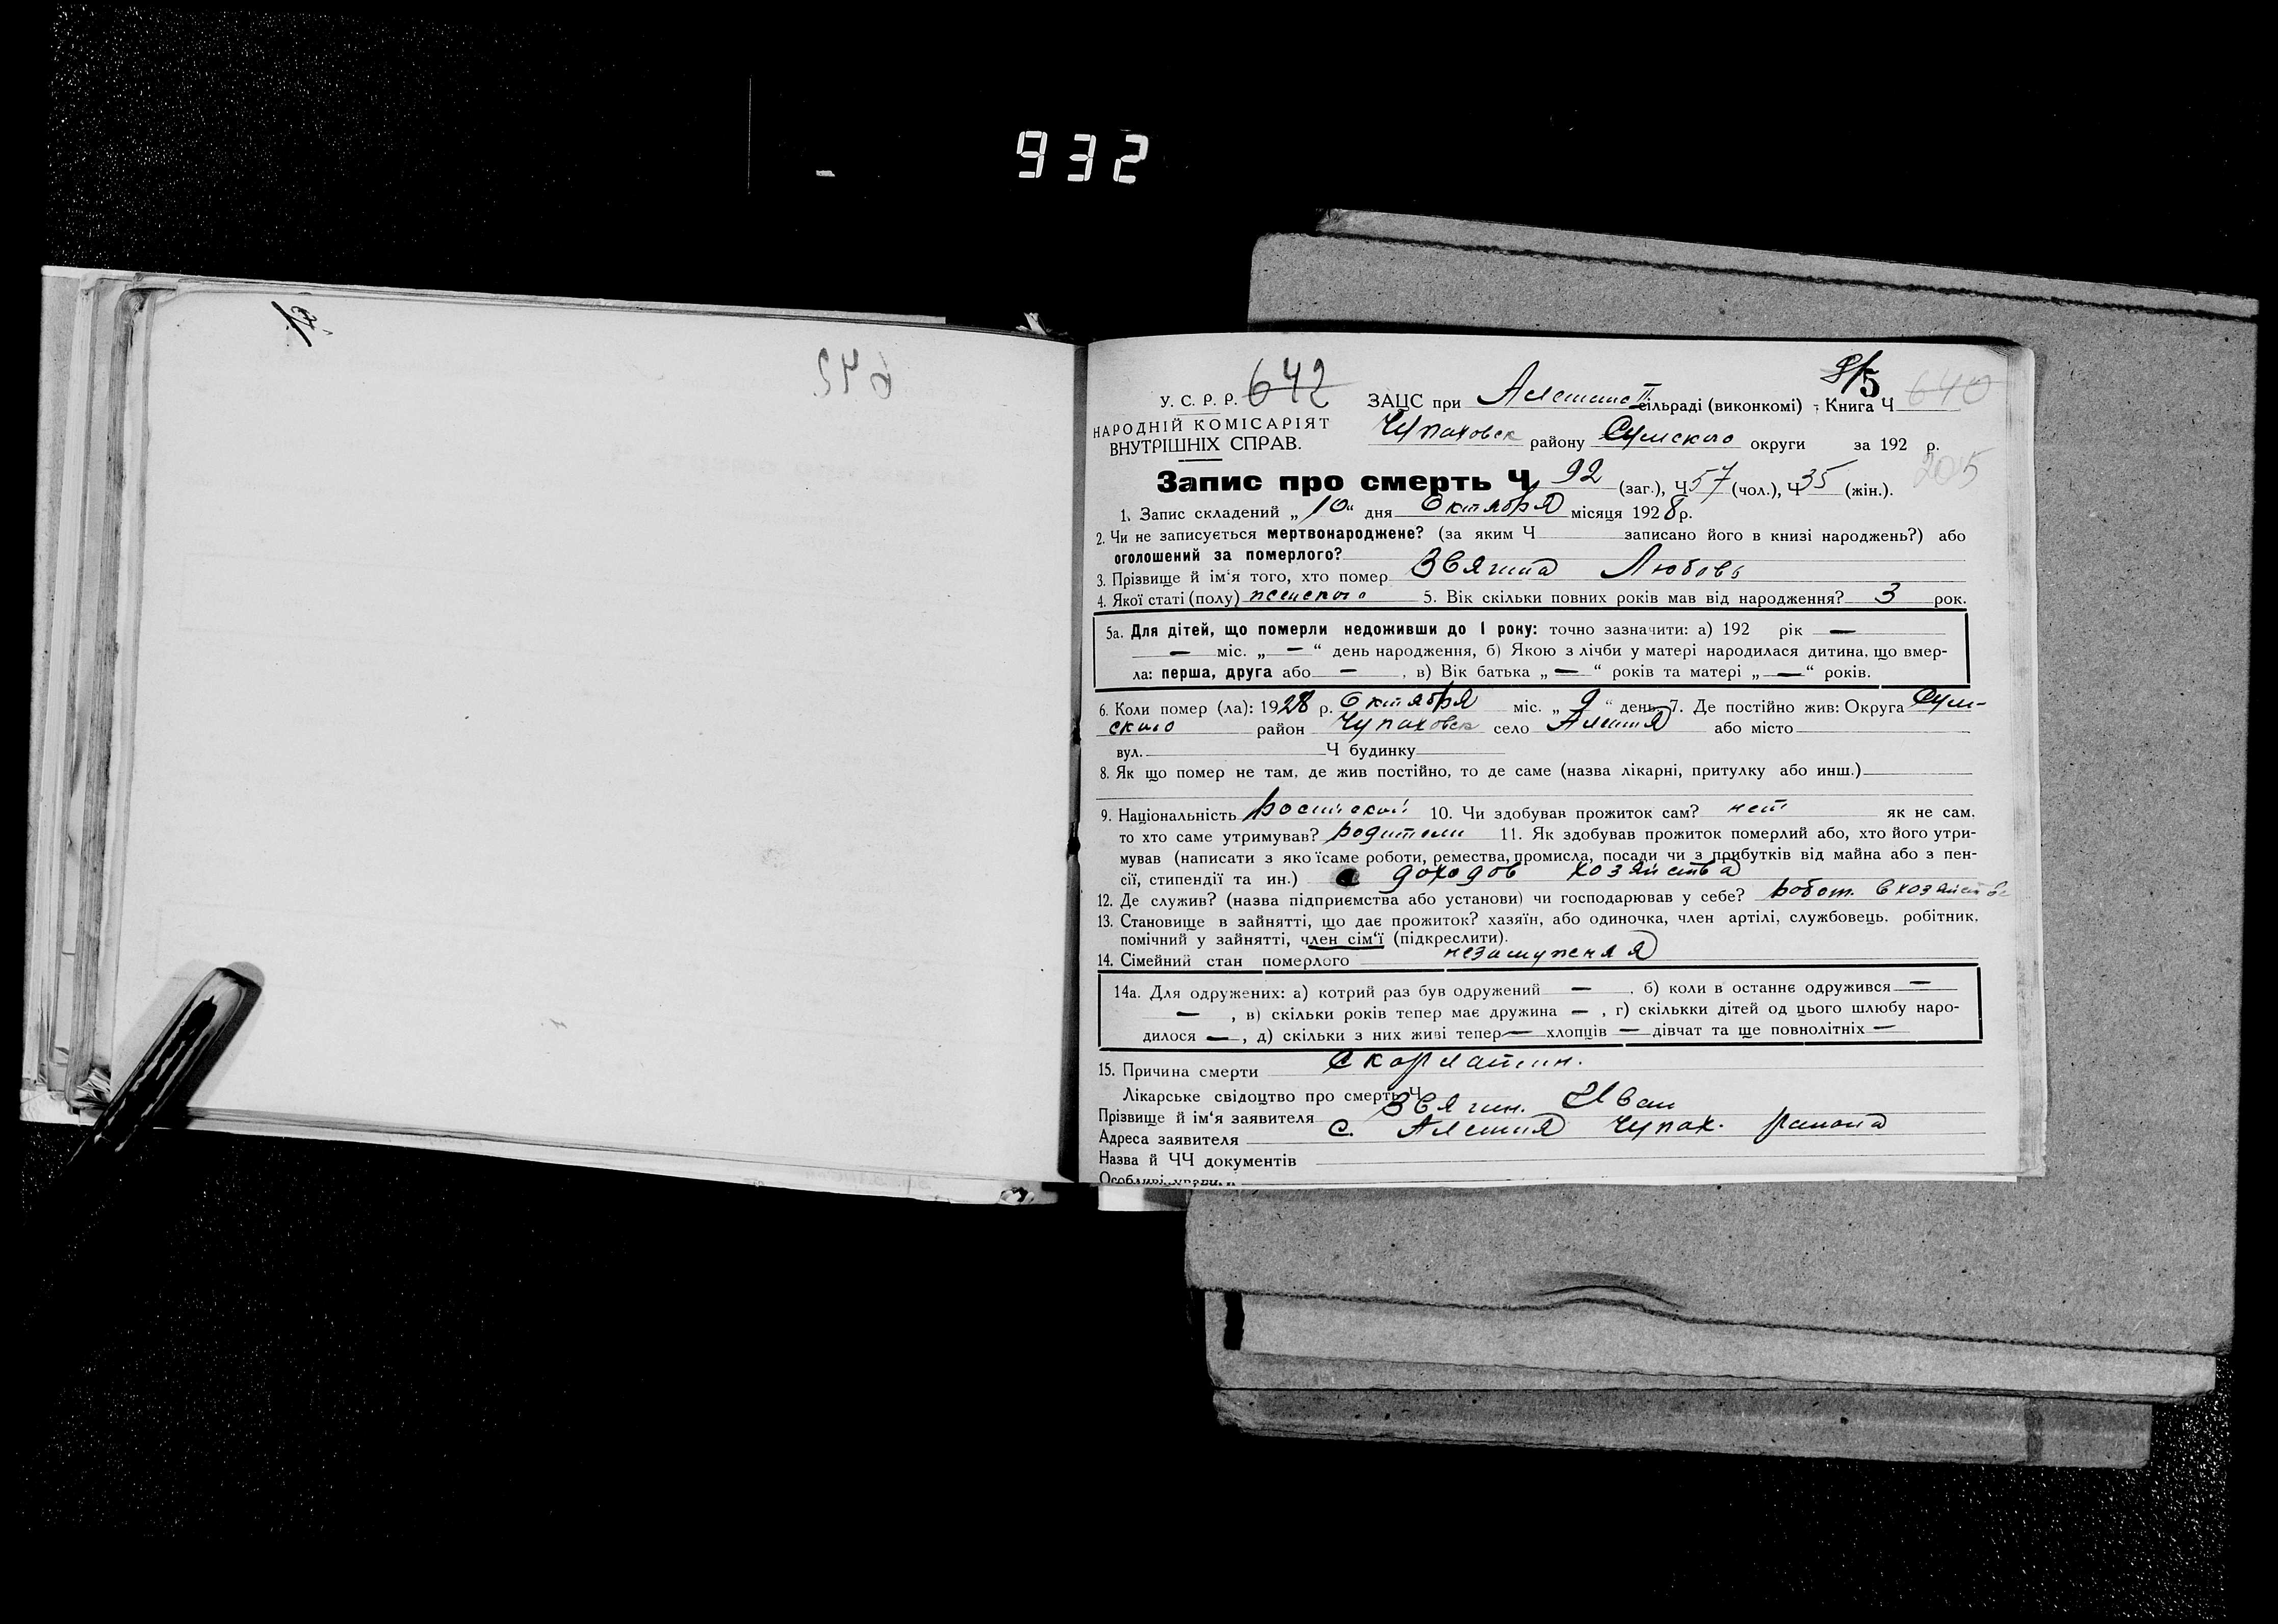 932
642
У. С. Р. Р.
НАРОДНІЙ КОМІСАРІЯТ
ВНУТРІШНІХ СПРАВ.
640
ЗАЦС при сільраді (виконкомі) Книга Ч
Чупаховск району Сумского округи за 192 р.
205
Запис про смерть Ч 92 (заг.), Ч 57 (чол.), Ч 35 (жін.).
1. Запис складений „10“ дня Октября місяця 1928 р.
2. Чи не записується мертвонароджене? (за яким Ч записано його в книзі народжень?) або
оголошений за померлого?
3. Прізвище й ім‘я того, хто помер Звягина Любовь
4. Якої статі (полу) женского 5. Вік скільки повних років мав від народження? 3 рок.
5а. Для дітей, що померли недоживши до 1 року: точно зазначити: а) 192 рік —
— міс. „ — “ день народження, б) Якою з лічби у матері народилася дитина, що вмер-
ла: перша, друга або — , в) Вік батька „ — “ років та матері „ — “ років.
6. Коли помер (ла): 1928 р. Октября міс. „ 9 “ день 7. Де постійно жив: Округа Сум-
ского район Чупаховск село Алешня або місто
вул. Ч будинку
8. Як що помер не там, де жив постійно, то де саме (назва лікарні, притулку або инш.)
9. Національність 10. Чи здобував прожиток сам? нет як не сам,
то хто саме утримував? родители 11. Як здобував прожиток померлий або, хто його утри-
мував (написати з якоїсаме роботи, ремества, промисла, посади чи з прибутків від майна або з пен-
сії, стипендії та ин.) доходов хозяйства
12. Де служив? (назва підприємства або установи) чи господарював у себе? робот. в хозяйстве
13. Становище в зайнятті, що дає прожиток? хазяїн, або одиночка, член артілі, службовець, робітник,
помічний у зайнятті, член сім‘ї (підкреслити).
14. Сімейний стан померлого незамужняя
14а. Для одружених: а) котрий раз був одружений — , б) коли в останнє одружився —
— , в) скільки років тепер має дружина — , г) скількки дітей од цього шлюбу наро-
дилося — , д) скільки з них живі тепер — хлопців — дівчат та ще повнолітніх —
15. Причина смерти Скарлатин.
Лікарське свідоцтво про смерть Ч
Прізвище й ім‘я заявителя Звягин. Иван
Адреса заявителя с. Алешня Чупах. района
Назва й ЧЧ документів